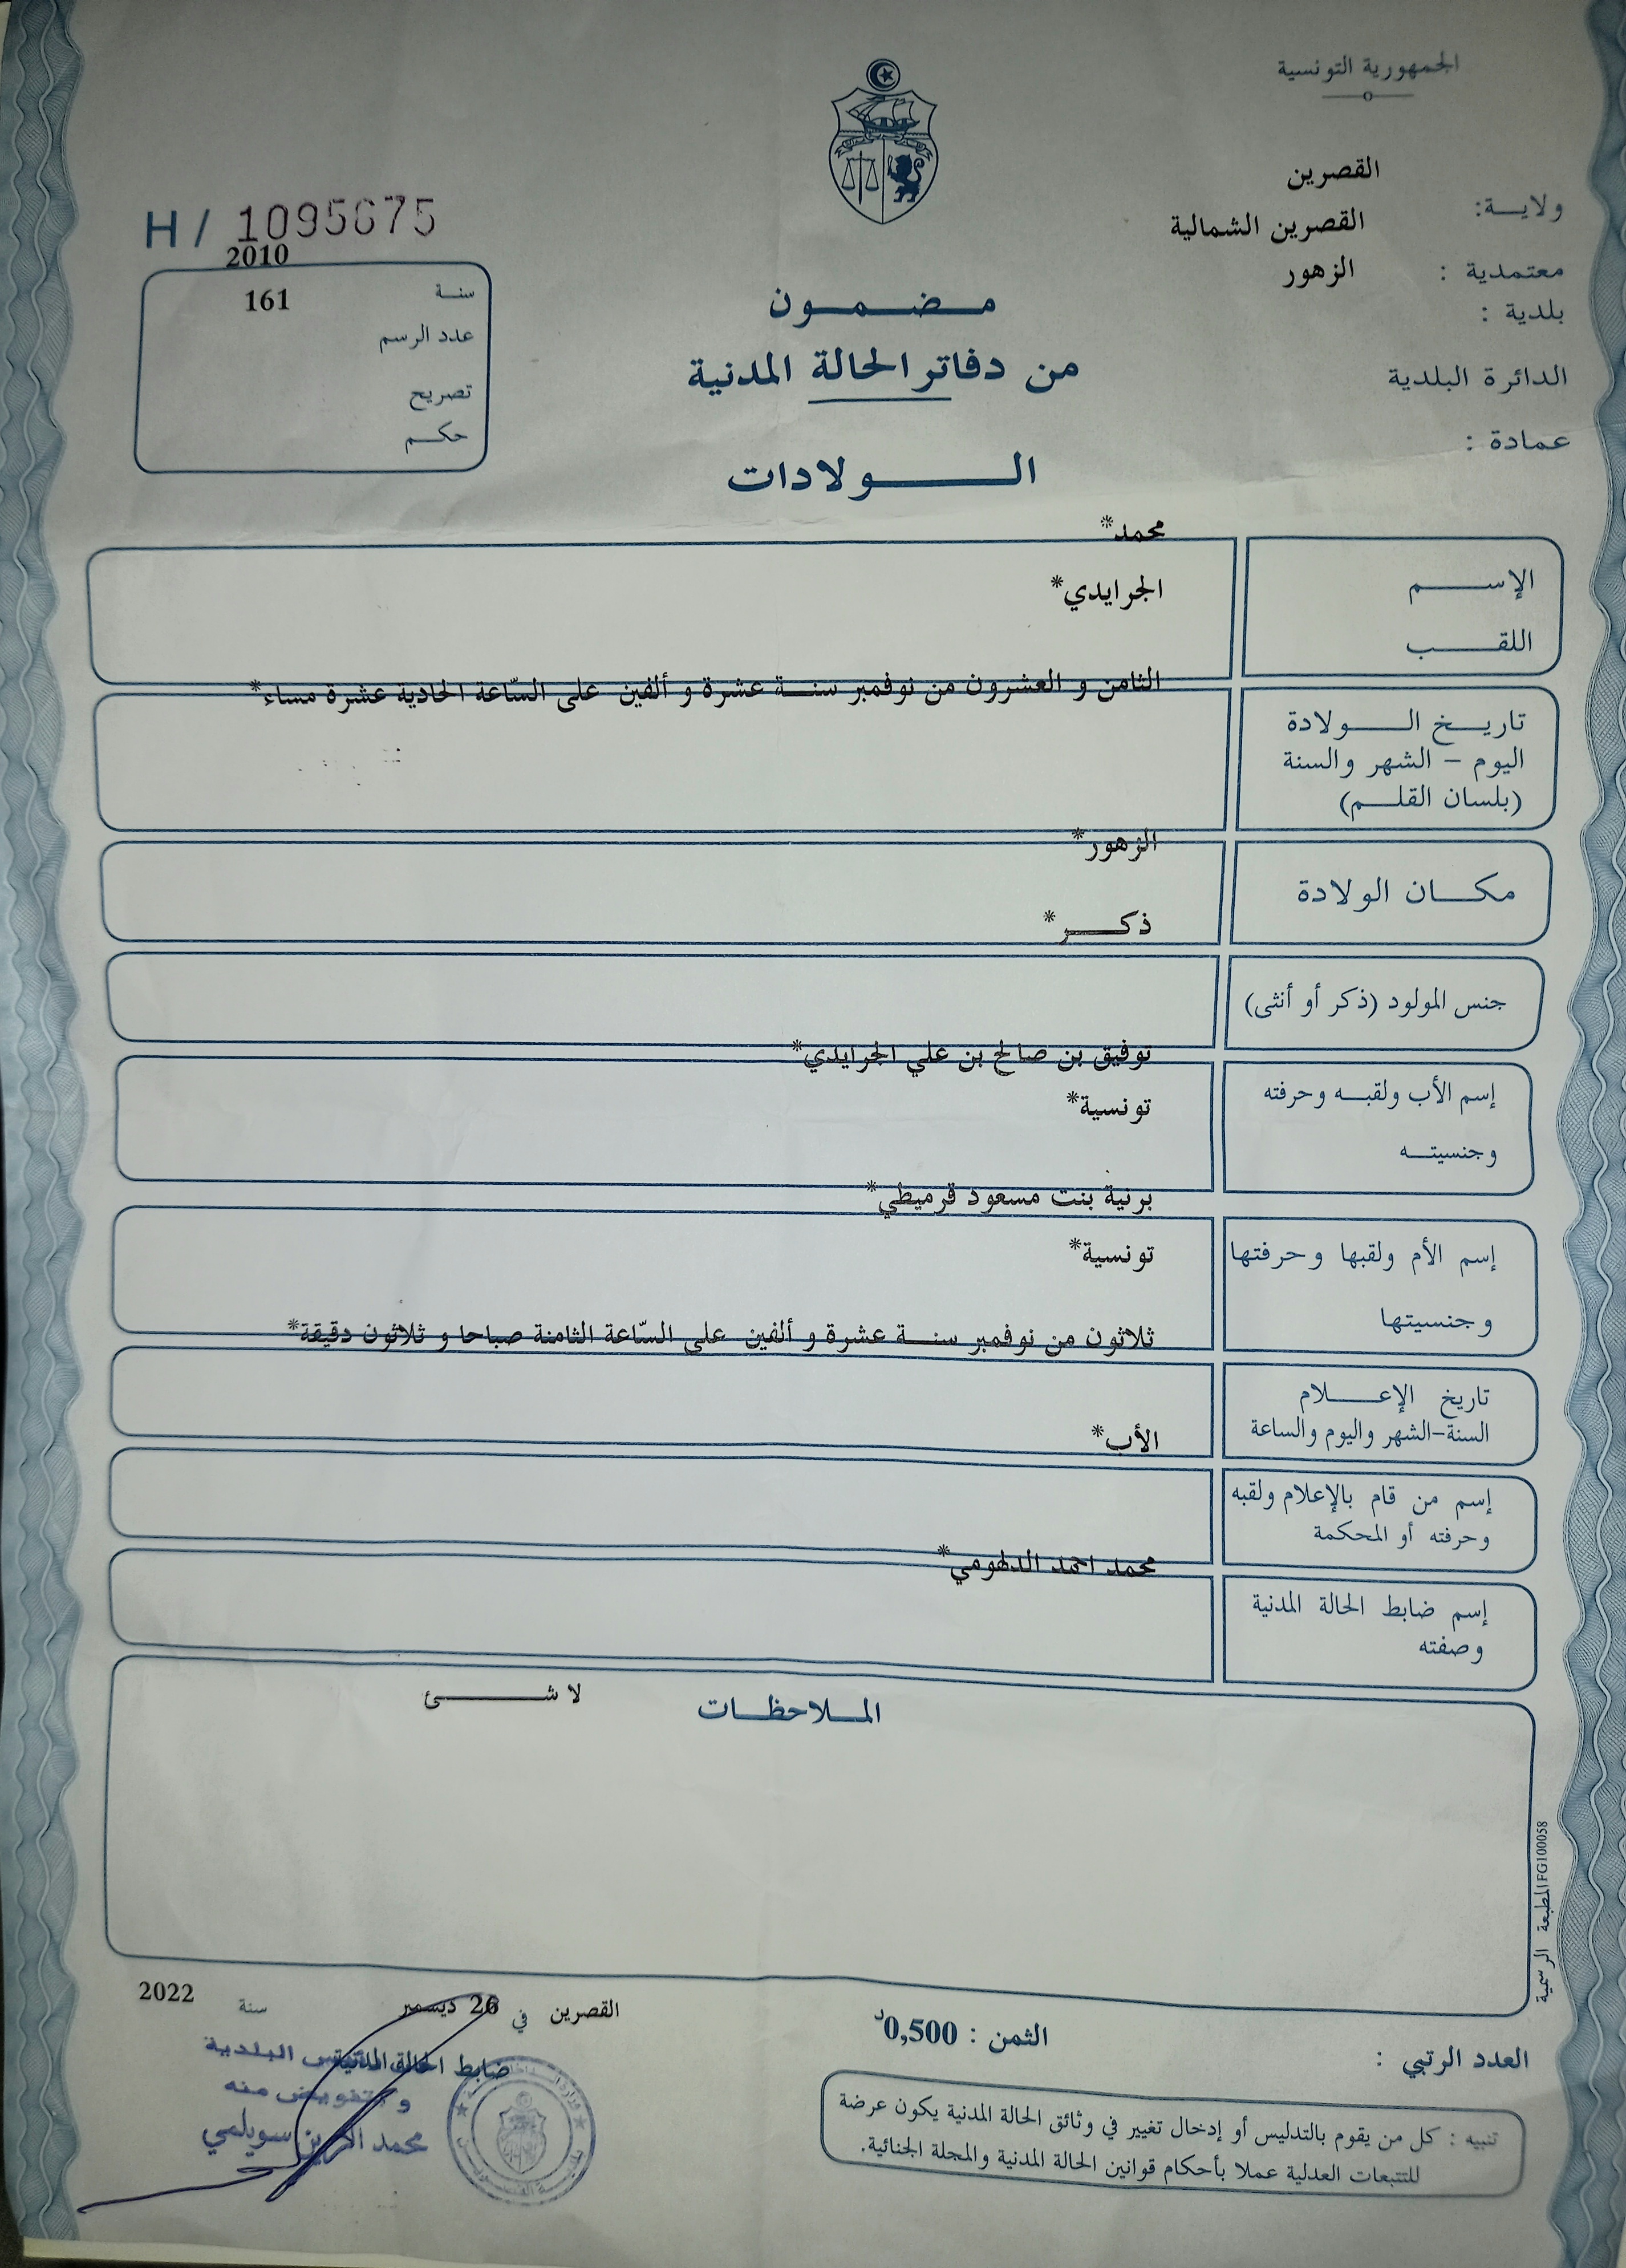 الجمهورية التونسية
ولايــة: القصرين
معتمدية : القصرين الشمالية
بلدية : الزهور
الدائرة البلدية
عمادة :
H / 1095675
2010
سنة
161
عدد الرسم
تصريح
حكم
مضمون
من دفاتر الحالة المدنية
الولادات
محمد*
الإسم
الجرايدي*
اللقب
الثامن و العشرون من نوفمبر سنة عشرة و ألفين على السّاعة الحادية عشرة مساء*
تاريخ الولادة
اليوم – الشهر والسنة
(بلسان القلم)
الزهور*
مكان الولادة
ذكر*
جنس المولود (ذكر أو أنثى)
توفيق بن صالح بن علي الجرايدي*
إسم الأب ولقبه وحرفته
تونسية*
وجنسيته
برنية بنت مسعود قرميطي*
إسم الأم ولقبها وحرفتها
تونسية*
وجنسيتها
ثلاثون من نوفمبر سنة عشرة و ألفين على السّاعة الثامنة صباحا و ثلاثون دقيقة*
تاريخ الإعلام
السنة-الشهر واليوم والساعة
الأب*
إسم من قام بالإعلام ولقبه
وحرفته أو المحكمة
محمد احمد الدلهومي*
إسم ضابط الحالة المدنية
وصفته
الملاحظات
لا شئ
المطبعة الرسمية FG100058
القصرين في 26 ديسمبر سنة 2022
ضابط الحالة المدنية
البلدية
و بتفويض منه
محمد سويلمي
الثمن : 0,500د
العدد الرتبي :
تنبيه : كل من يقوم بالتدليس أو إدخال تغيير في وثائق الحالة المدنية يكون عرضة
للتتبعات العدلية عملا بأحكام قوانين الحالة المدنية والمجلة الجنائية.